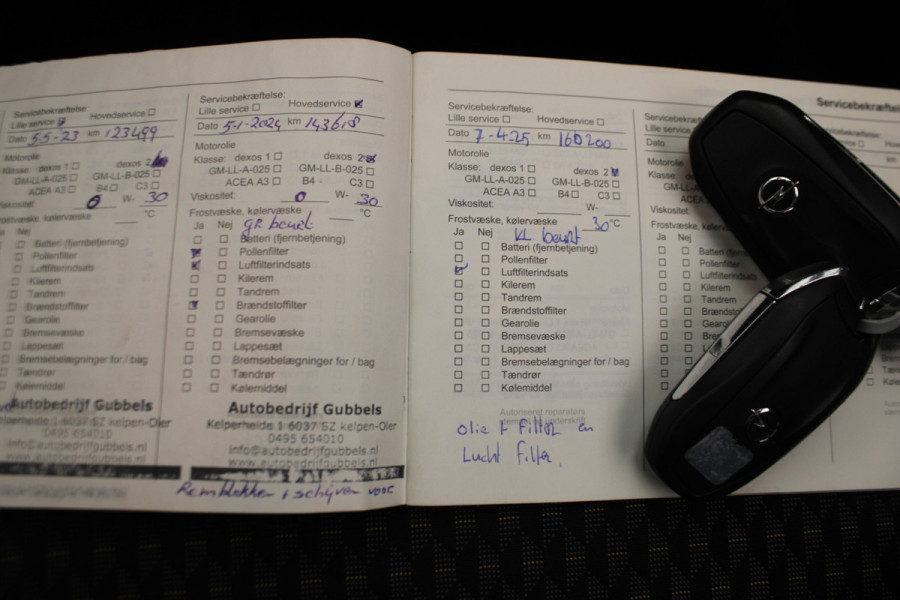 Servicebekræftelse:
Lille service ☒ Hovedservice ☐
Dato 5-5-23 km 123499
Motorolie
Klasse: dexos 1 ☐ dexos 2 ☒
GM-LL-A-025 ☐ GM-LL-B-025 ☐
ACEA A3 ☐ B4 ☐ C3 ☐
Viskositet: 0 W- 30
Frostvæske, kølervæske °C
Ja Nej
☐ Batteri (fjernbetjening)
☐ Pollenfilter
☐ Luftfilterindsats
☐ Kilerem
☐ Tandrem
☐ Brændstoffilter
☐ Gearolie
☐ Bremsevæske
☐ Lappesæt
☐ Bremsebelægninger for / bag
☐ Tændrør
☐ Kølemiddel
Autobedrijf Gubbels
Kelperheide 1 6037 SZ kelpen-Oler
0495 654010
info@autobedrijfgubbels.nl
www.autobedrijfgubbels.nl
Servicebekræftelse:
Lille service ☐ Hovedservice ☒
Dato 5-1-2024 km 143618
Motorolie
Klasse: dexos 1 ☐ dexos 2 ☒
GM-LL-A-025 ☐ GM-LL-B-025 ☐
ACEA A3 ☐ B4 - C3 ☐
Viskositet: 0 W- 30
Frostvæske, kølervæske °C
Ja Nej gr beurt
☐ ☐ Batteri (fjernbetjening)
☒ ☐ Pollenfilter
☒ ☐ Luftfilterindsats
☐ ☐ Kilerem
☐ ☐ Tandrem
☒ ☐ Brændstoffilter
☐ ☐ Gearolie
☐ ☐ Bremsevæske
☐ ☐ Lappesæt
☐ ☐ Bremsebelægninger for / bag
☐ ☐ Tændrør
☐ ☐ Kølemiddel
Autobedrijf Gubbels
Kelperheide 1 6037 SZ kelpen-Oler
0495 654010
info@autobedrijfgubbels.nl
www.autobedrijfgubbels.nl
Remblokken + schijven voor
Servicebekræftelse:
Lille service ☐ Hovedservice ☐
Dato 7-4-25 km 160200
Motorolie
Klasse: dexos 1 ☐ dexos 2 ☒
GM-LL-A-025 ☐ GM-LL-B-025 ☐
ACEA A3 ☐ B4 ☐ C3 ☐
Viskositet: W-
Frostvæske, kølervæske 30 °C
Ja Nej KL beurt
☐ ☐ Batteri (fjernbetjening)
☐ ☐ Pollenfilter
☒ ☐ Luftfilterindsats
☐ ☐ Kilerem
☐ ☐ Tandrem
☐ ☐ Brændstoffilter
☐ ☐ Gearolie
☐ ☐ Bremsevæske
☐ ☐ Lappesæt
☐ ☐ Bremsebelægninger for / bag
☐ ☐ Tændrør
☐ ☐ Kølemiddel
Autoriseret reparatørs
olie + Filter en
Lucht filter.
Lille service
Dato
Motorolie
Viskositet:
Frostvæske,
Ja Nej